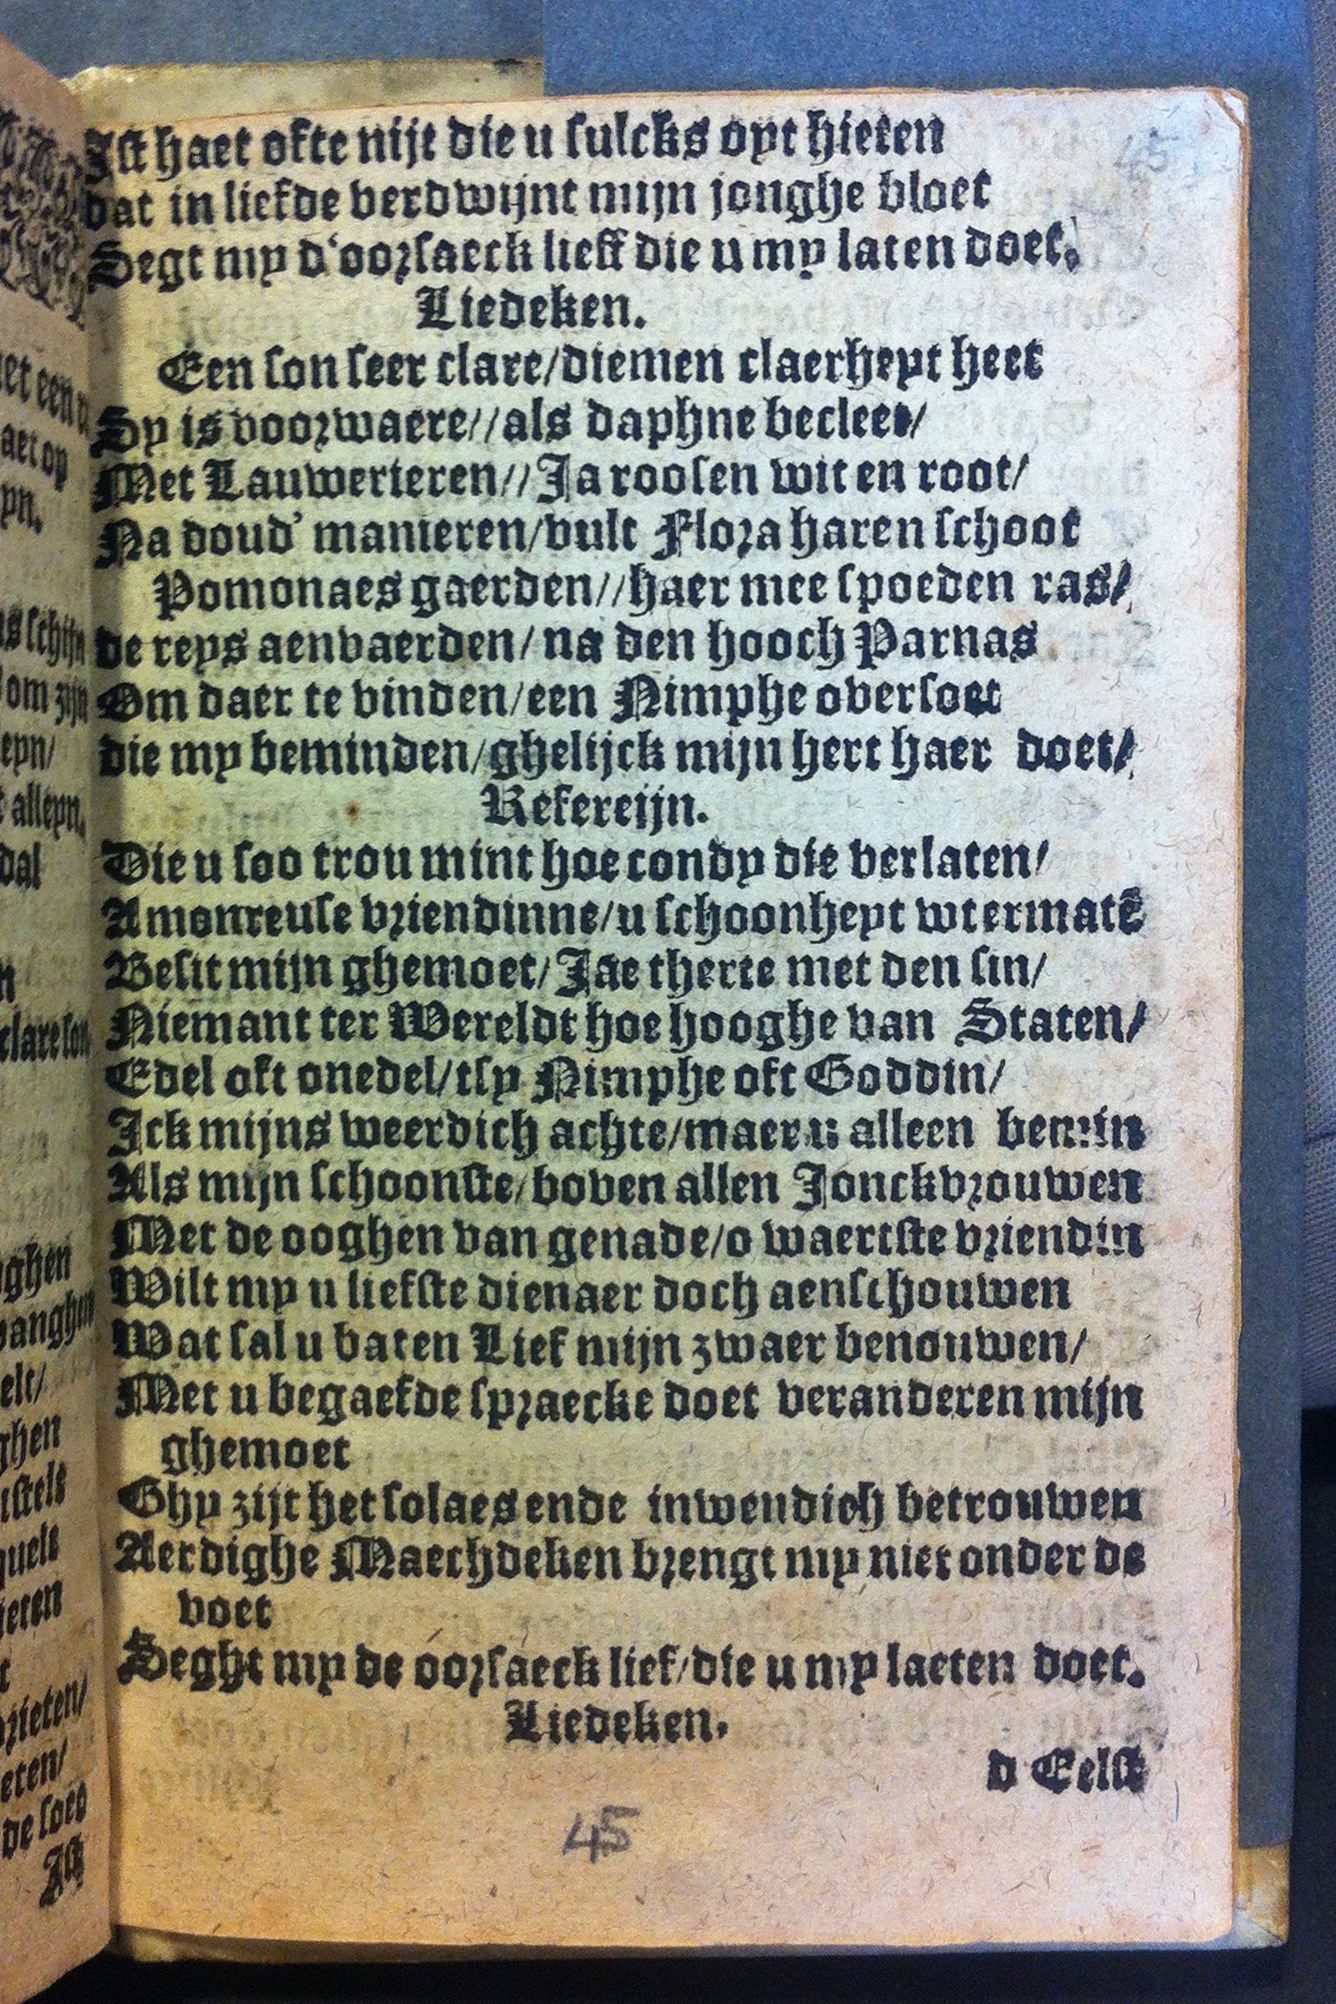 45
Ist haet ofte nijt die u sulcks oyt hieten
dat in liefde verdwijnt mijn jonghe bloet
Segt my d'oorsaeck lieff die u my laten doet.
Liedeken.
Een son seer clare/diemen claerheyt heet
Sy is voorwaere//als daphne becleet/
Met Lauwerieren//Ja roosen wit en root/
Na doud' manieren/vult Flora haren schoot
Pomonaes gaerden//haer mee spoeden ras/
de reys aenvaerden/na den hooch Parnas
Om daer te vinden/een Nimphe oversoet
die my beminden/ghelijck mijn hert haer doet/
Refereijn.
Die u soo trou mint hoe condy die verlaten/
Amoureuse vriendinne/u schoonheyt wtermatē
Besit mijn ghemoet/Jae therte met den sin/
Niemant ter Wereldt hoe hooghe van Staten/
Edel oft onedel/tsy Nimphe oft Goddin/
Ick mijns weerdich achte/maer u alleen bemin
Als mijn schoonste/boven allen Jonckvrouwen
Met de ooghen van genade/o waertste vriendin
Wilt my u liefste dienaer doch aenschouwen
Wat sal u baten Lief mijn zwaer benouwen/
Met u begaefde spraecke doet veranderen mijn
ghemoet
Ghy zijt het solaes ende inwendich betrouwen
Aerdighe Maechdeken brengt my niet onder de
voet
Seght my de oorsaeck lief/die u my laeten doet.
Liedeken.
d Eelst
45